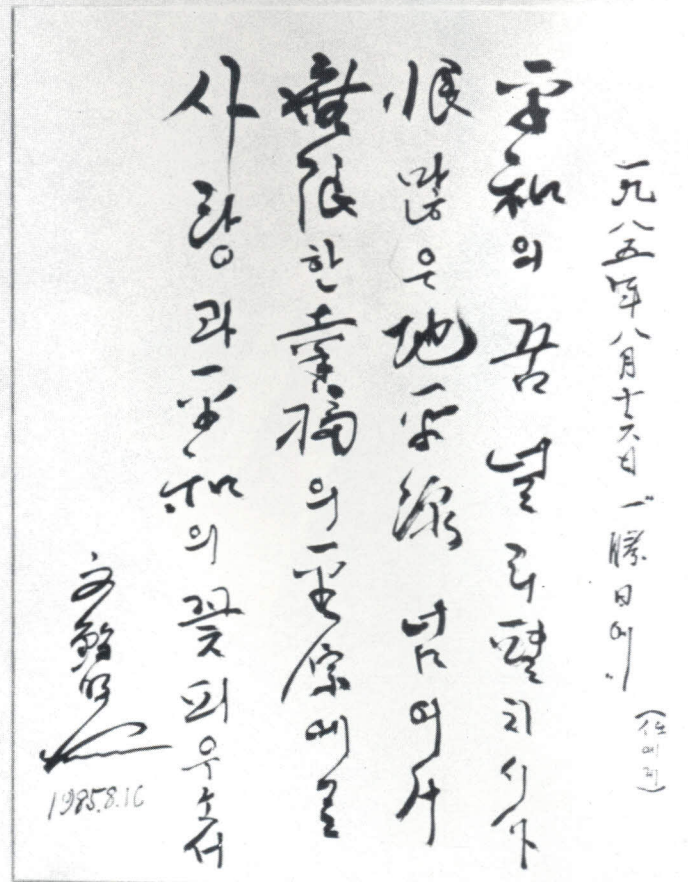 一九八五年八月十六日 一勝日에
平和의 꿈 널리 펼치시사
恨 많은 地平線 넘어서
無限한 幸福의 平原에로
사랑과 平和의 꽃 피우소서
文鮮明
1985.8.16